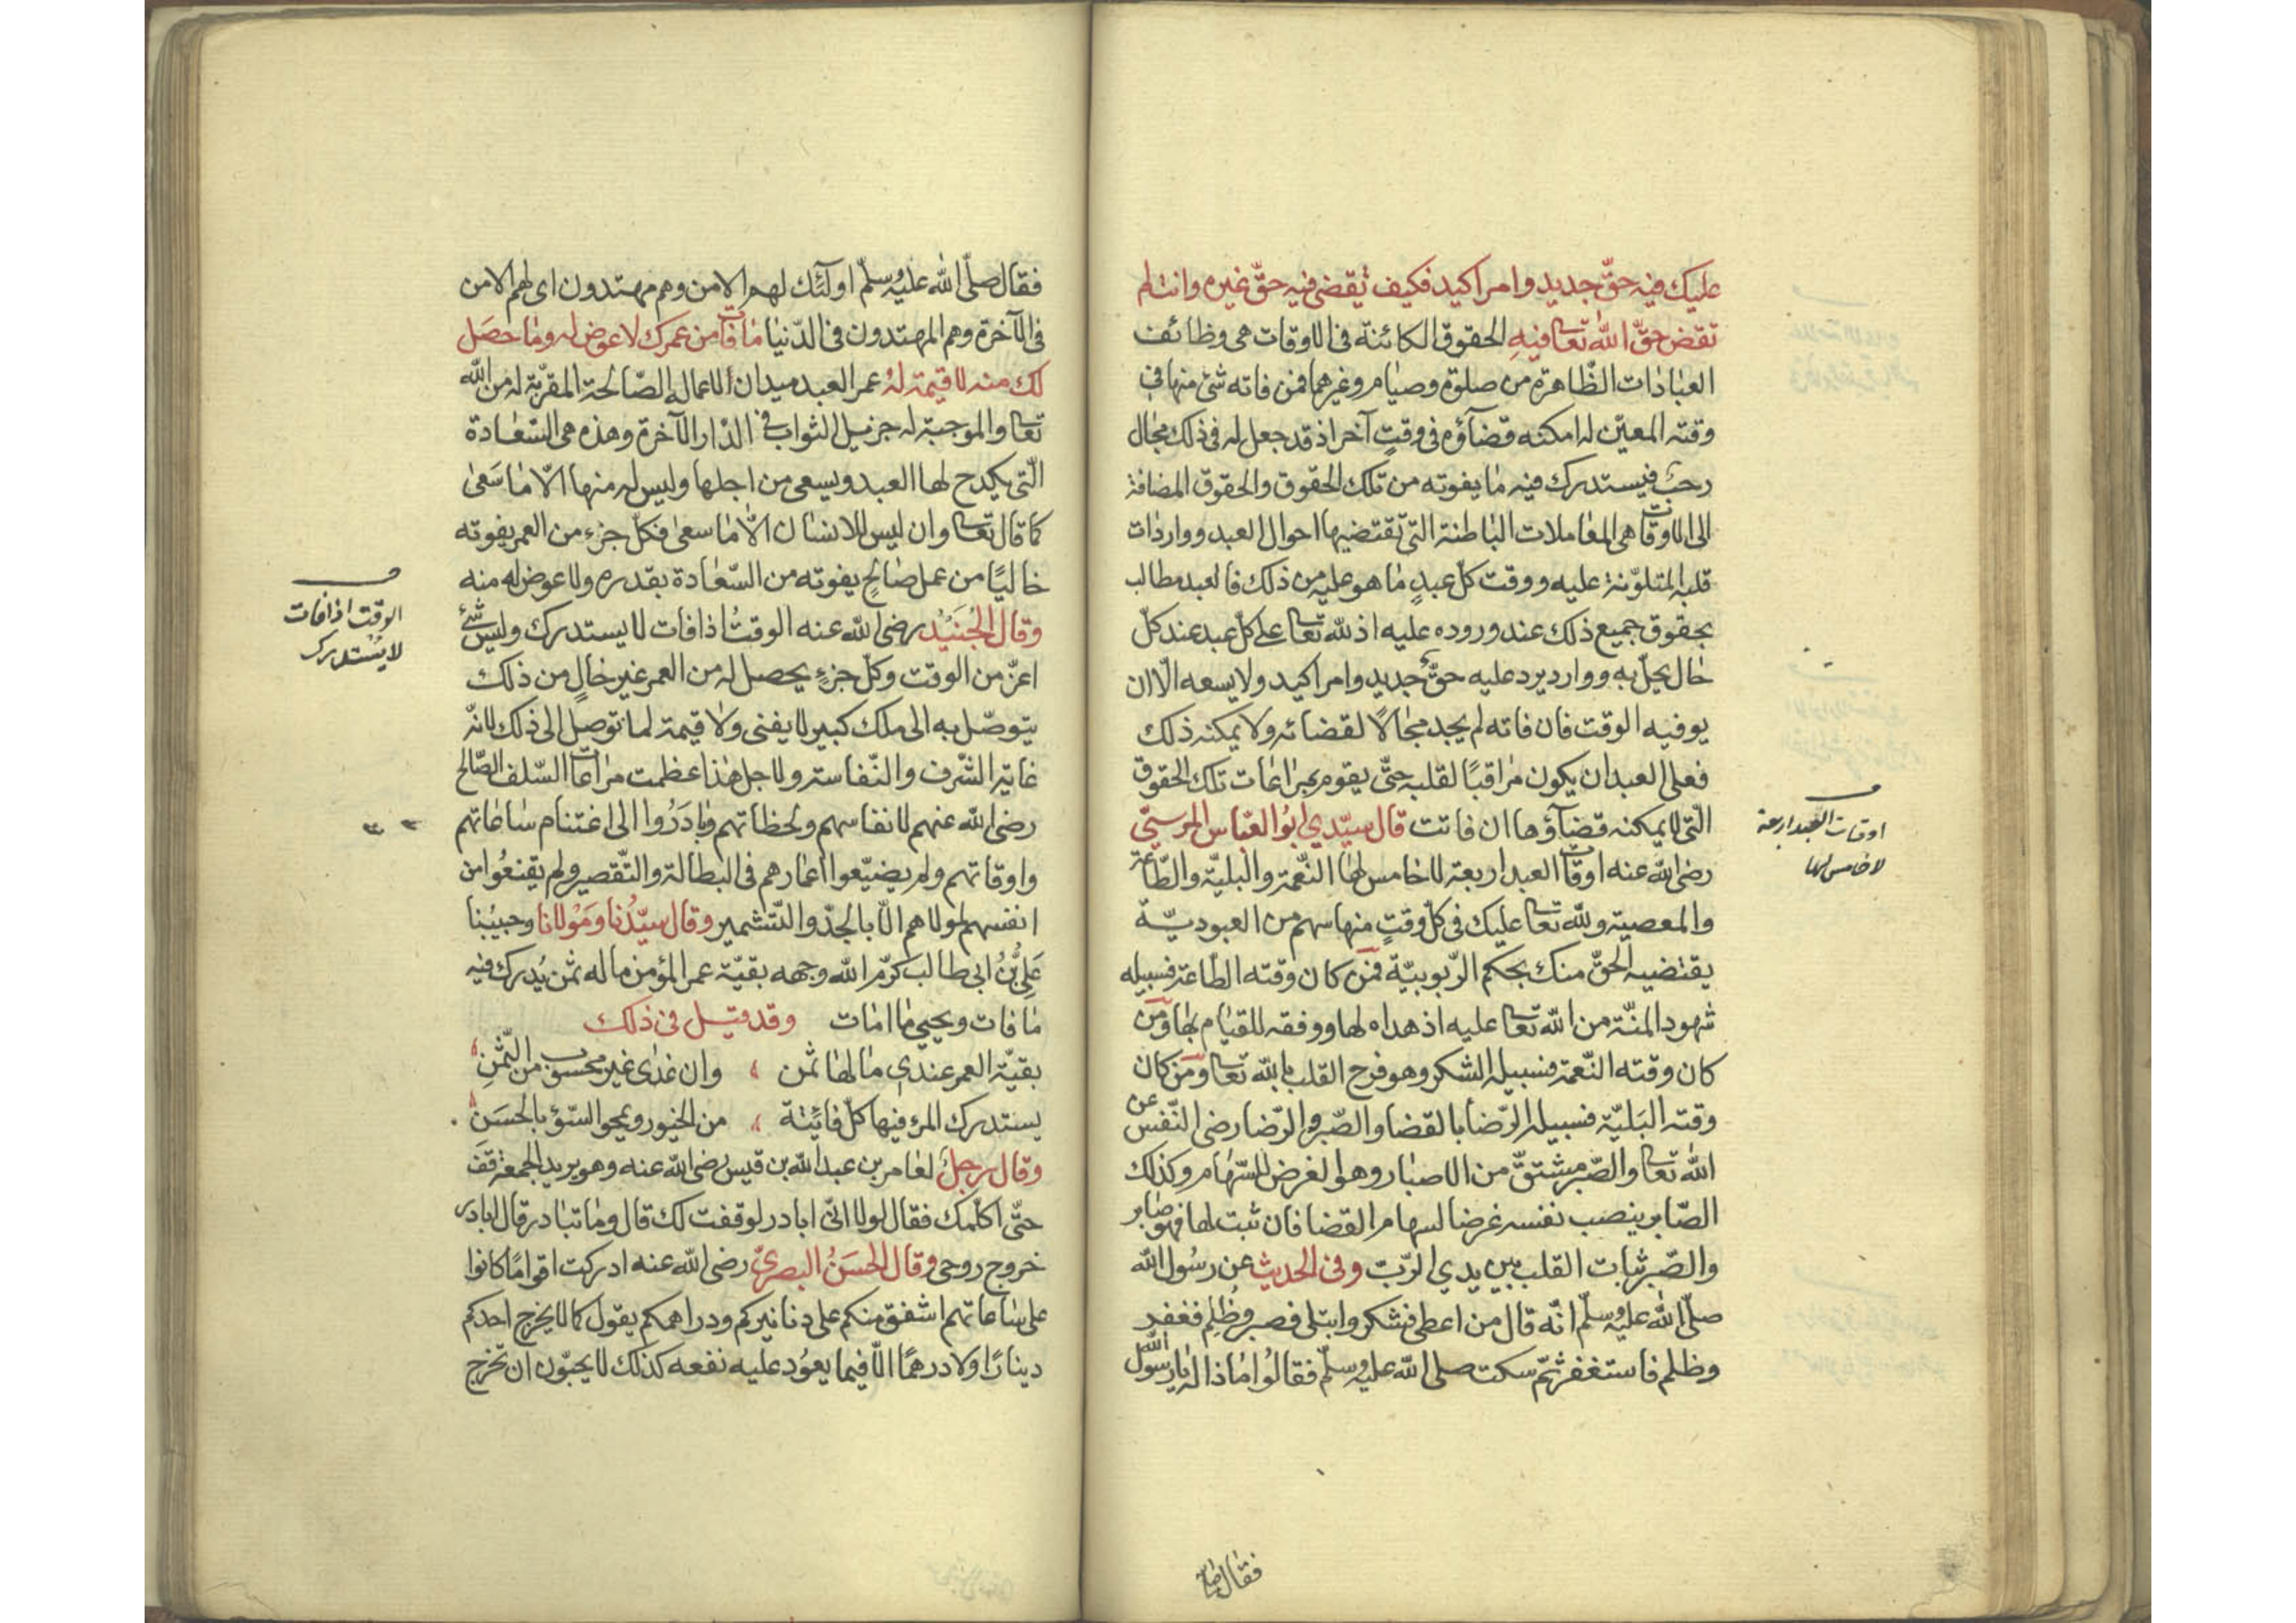 عليك فيه حقّ جديد وامر اكيد فكيف تقضى فيه حقّ غيره وانت لم
تقض حقّ الله تعا فيه الحقوق الكائنة فى الاوقات هى وظائف
العبادات الظّاهرة من صلوة وصيام وغيرهما فمن فاته شئ منها فى
وقته المعيّن له امكنه قضآؤه فى وقتٍ آخر اذ قد جعل له فى ذلك مجال
رحب فيستدرك فيه ما يفوته من تلك الحقوق والحقوق المضافة
الى الاوقات هى المعاملات الباطنة التى تقتضيها احوال العبد وواردات
قلبه المتلوّنة عليه ووقت كلّ عبدٍ ما هو عليه من ذلك فالعبد مطالب
بحقوق جميع ذلك عند وروده عليه اذ لله تعا على كلّ عبد عند كلّ
حال يحلّ به ووارد يرد عليه حقٌّ جديد وامر اكيد ولا يسعه الّا ان
يوفيه الوقت فان فاته لم يجد مجالًا لقضائه ولا يمكنه ذلك
فعلى العبد ان يكون مراقبًا لقلبه حتّى يقوم بمراعات تلك الحقوق
الّتى لا يمكنه قضآؤها ان فاتت قال سيّدي ابو العبّاس المرسيّ
رضى الله عنه اوقات العبد اربعة لا خامس لها النّعمة والبليّة والطّاعة
والمعصية ولله تعا عليك فى كلّ وقتٍ منها سهم من العبوديّة
يقتضيه الحقّ منك بحكم الرّبوبيّة فمن كان وقته الطّاعة فسبيله
شهود المنّة من الله تعا عليه اذ هداه لها ووفقه للقيام بها ومن
كان وقته النّعمة فسبيله الشكر وهو فرح القلب بالله تعا ومن كان
وقته البَليّة فسبيله الرّضا بالقضا والصّبر والرّضا رضى النّفس عن
الله تعا والصّبر مشتقّ من الاصبار وهو الغرض للسّهام وكذلك
الصّابر ينصب نفسه غرضا لسهام القضا فان ثبت لها فهو صابر
والصّبر ثبات القلب بين يدي الرّبّ وفى الحديث عن رسول الله
صلّى الله عليه وسلّم انّه قال من اعطى فشكر وابتلى فصبر وظُلِم فغفر
وظلم فاستغفر ثمّ سكت صلى الله عليه وسلّم فقالوا ماذا له يا رسول الله
اوقات العبد اربعة
لا خامس لها
فقال صلى
فقال صلّى الله عليه وسلّم اولئك لهم الامن وهم مهتدون اى لهم الامن
فى الآخرة وهم المهتدون فى الدّنيا ما فات من عمرك لا عوض له وما حَصَل
لك منه لا قيمة لهُ عمر العبد ميدان الاعماله الصّالحة المقرّبة له من الله
تعا والموجبة له جزيل الثواب فى الدّار الآخرة وهذه هى السّعادة
الّتى يكدح لها العبد ويسعى من اجلها وليس له منها الّا ما سَعى
كما قال تعا وان ليس للانسان الّا ما سعى فكلّ جزء من العمر يفوته
خاليًا من عمل صالحٍ يفوته من السّعادة بقدره ولا عوض له منه
وقال الجُنَيْد رضى الله عنه الوقتُ اذا فات لا يستدرك وليس شئ
اعزّ من الوقت وكلّ جزءٍ يحصل له من العمر غير خالٍ من ذلك
يتوصّل به الى ملك كبير لا يفنى ولا قيمة لما توصل الى ذلك لانّه
غاية الشّرف والنّفاسة ولاجل هذا عظمت مراعات السّلف الصّالح
رضى الله عنهم لانفاسهم ولحظاتهم وبادَرُوا الى اغتنام ساعاتهم
واوقاتهم ولم يضيّعوا اعمارهم فى البطالة والتّقصير ولم يقنعُوا من
انفسهم لمولاهم الّا بالجدّ والتّشمير وقال سيّدُنا ومَوْلانا وحبيبُنا
عَلِىُّ بْنُ ابى طالب كرّم الله وجهه بقيّة عمر المؤمن ما له ثمن يُدرك فيه
ما فات ويحيى ما امات وقد قيل فى ذلك
بقيّة العمر عندي ما لها ثمن وان غدى غير محسوب من الثّمنِ
يستدرك المرء فيها كلّ فائتة من الخيور ويمحو السّوء بالحَسَن
وقال رجلٌ لعامر بن عبد الله بن قيس رضى الله عنه وهو يريد الجمعة قف
حتّى اكلّمك فقال لولا انّى ابادر لوقفت لك قال وما تبادر قال ابادر
خروج روحى وقال الحَسَنُ البصريّ رضى الله عنه ادركت اقوامًا كانوا
على ساعاتهم اشفق منكم على دنانيركم ودراهمكم يقول كما لا يخرج احدكم
دينارًا ولا درهمًا الّا فيما يعوُد عليه نفعه كذلك لا يحبّون ان تخرج
الوقت اذا فات
لا يستدرك